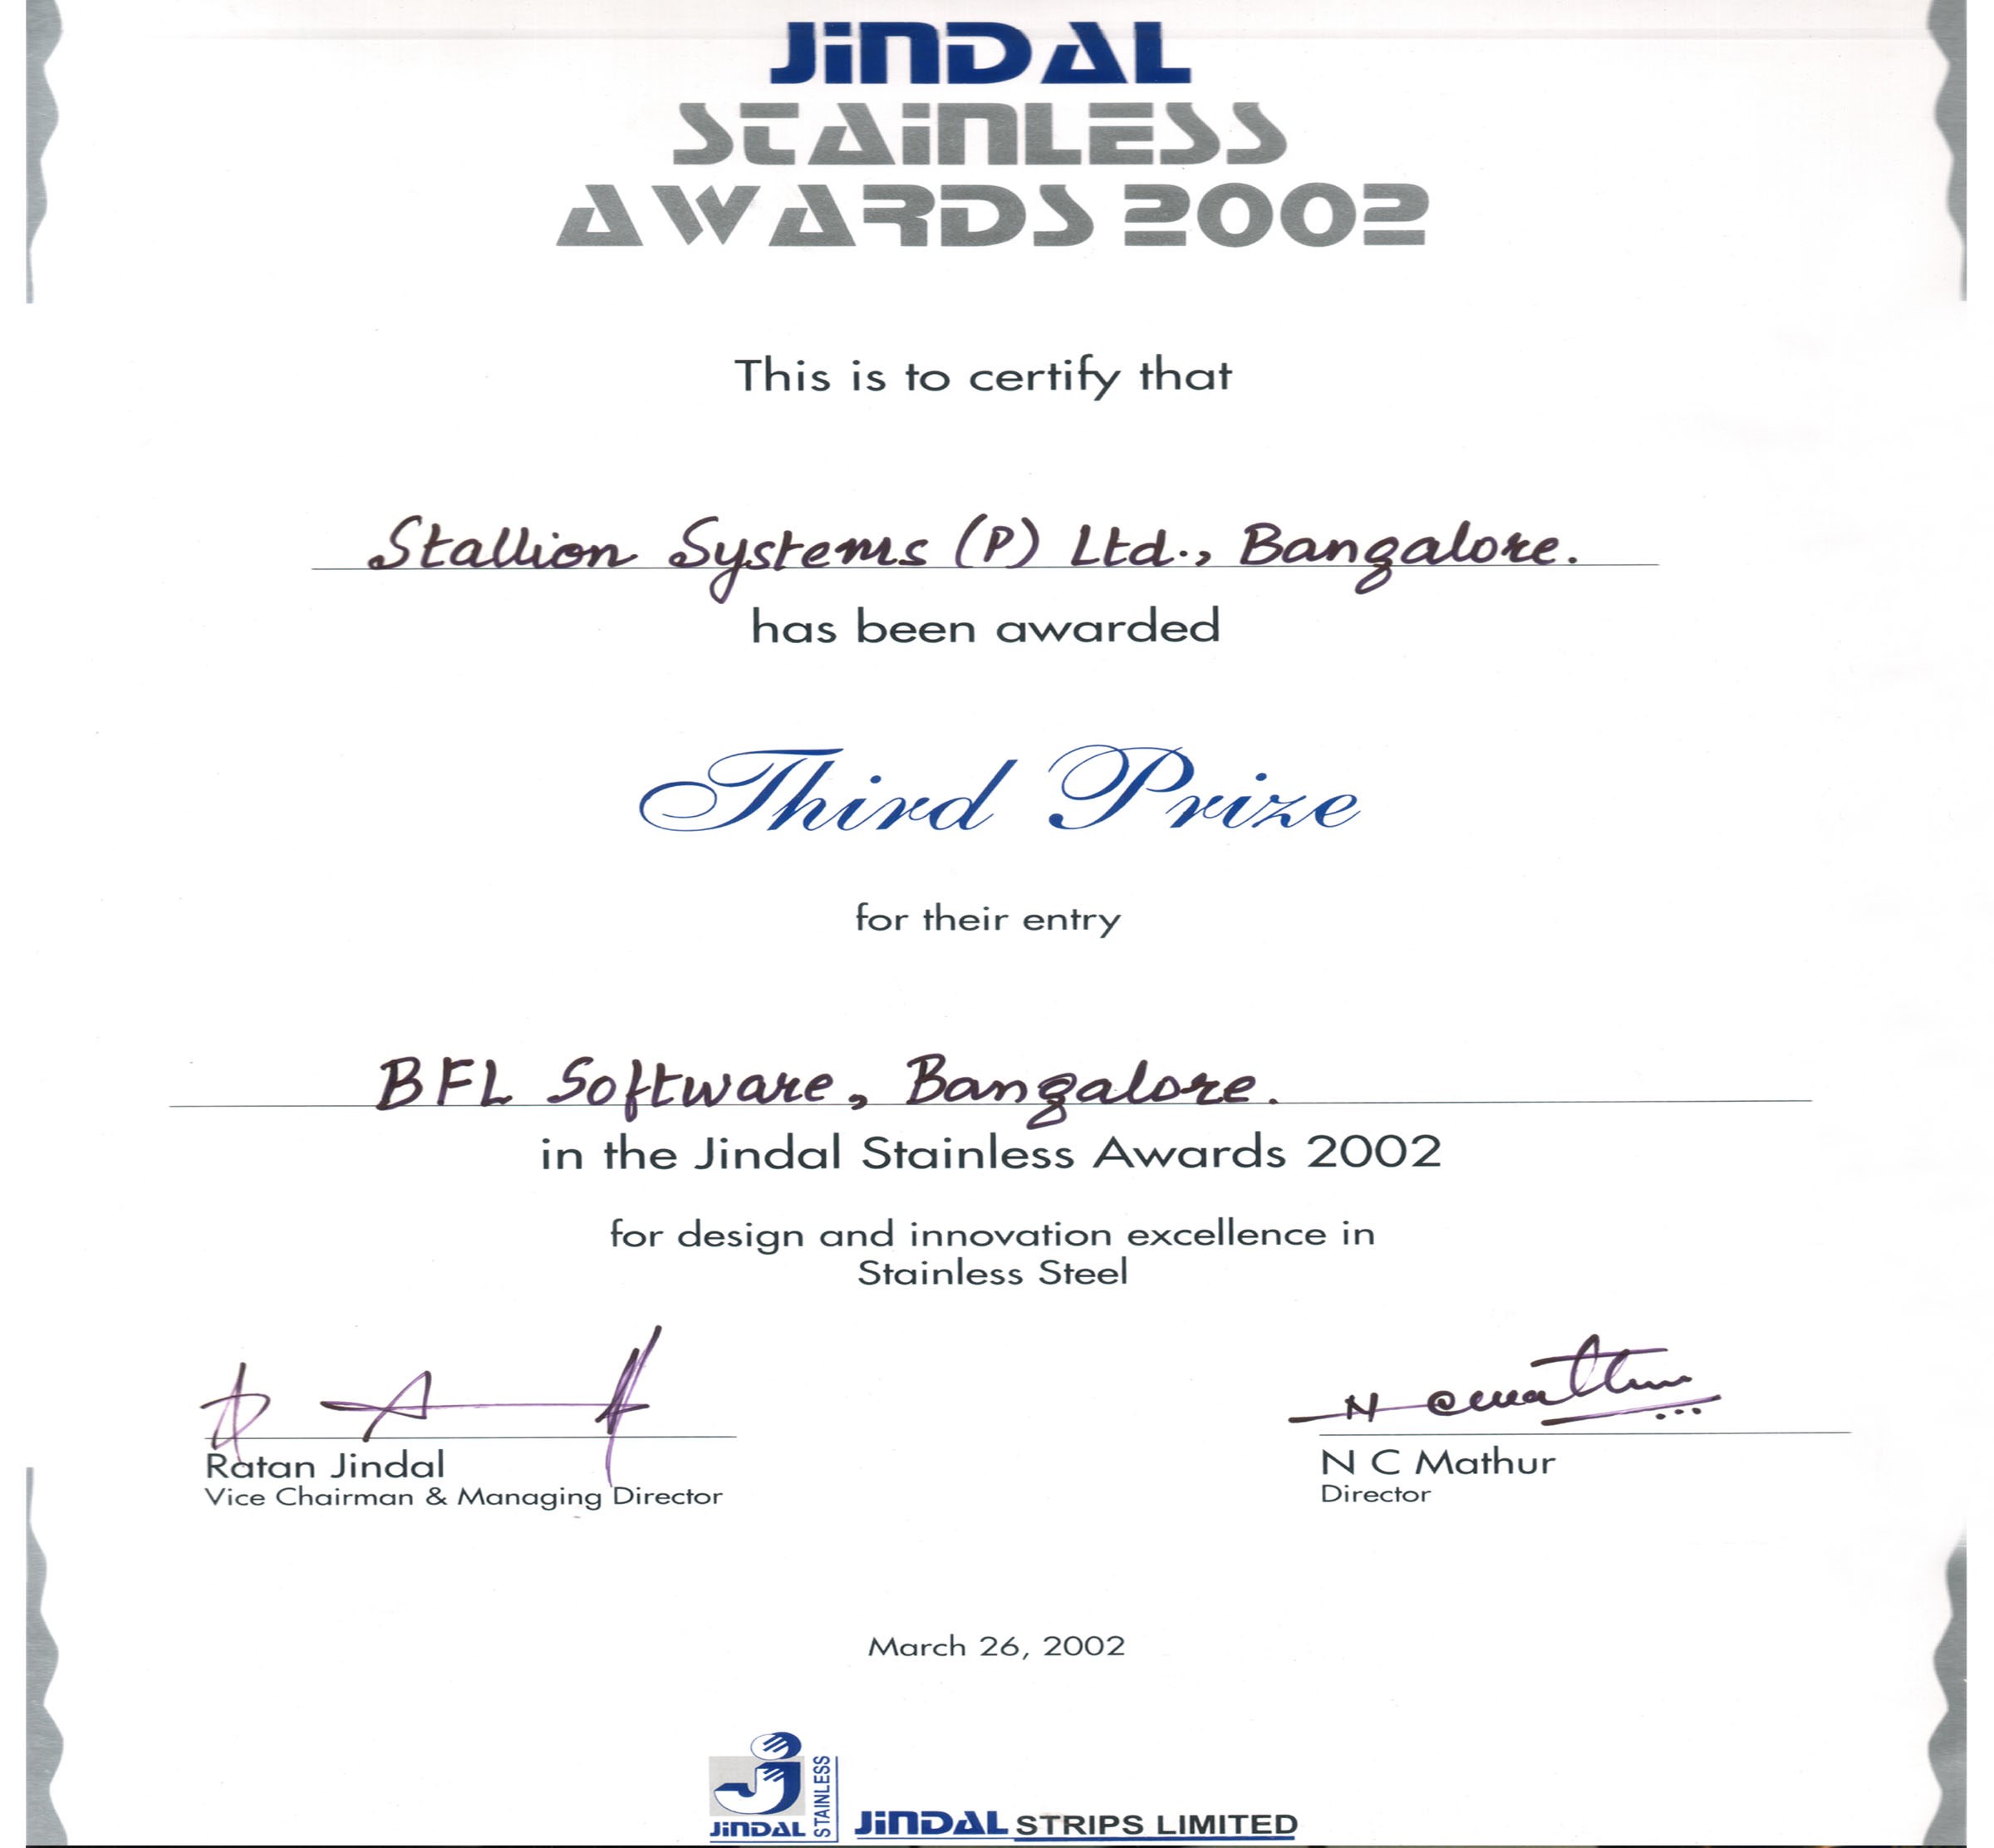 JINDAL
STAINLESS
AWARDS 2002
This is to certify that
Stallion Systems (P) Ltd., Bangalore.
has been awarded
Third Prize
for their entry
BFL Software, Bangalore.
in the Jindal Stainless Awards 2002
for design and innovation excellence in
Stainless Steel
Ratan Jindal
Vice Chairman & Managing Director
N C Mathur
Director
March 26, 2002
JINDAL
STAINLESS
JINDAL STRIPS LIMITED